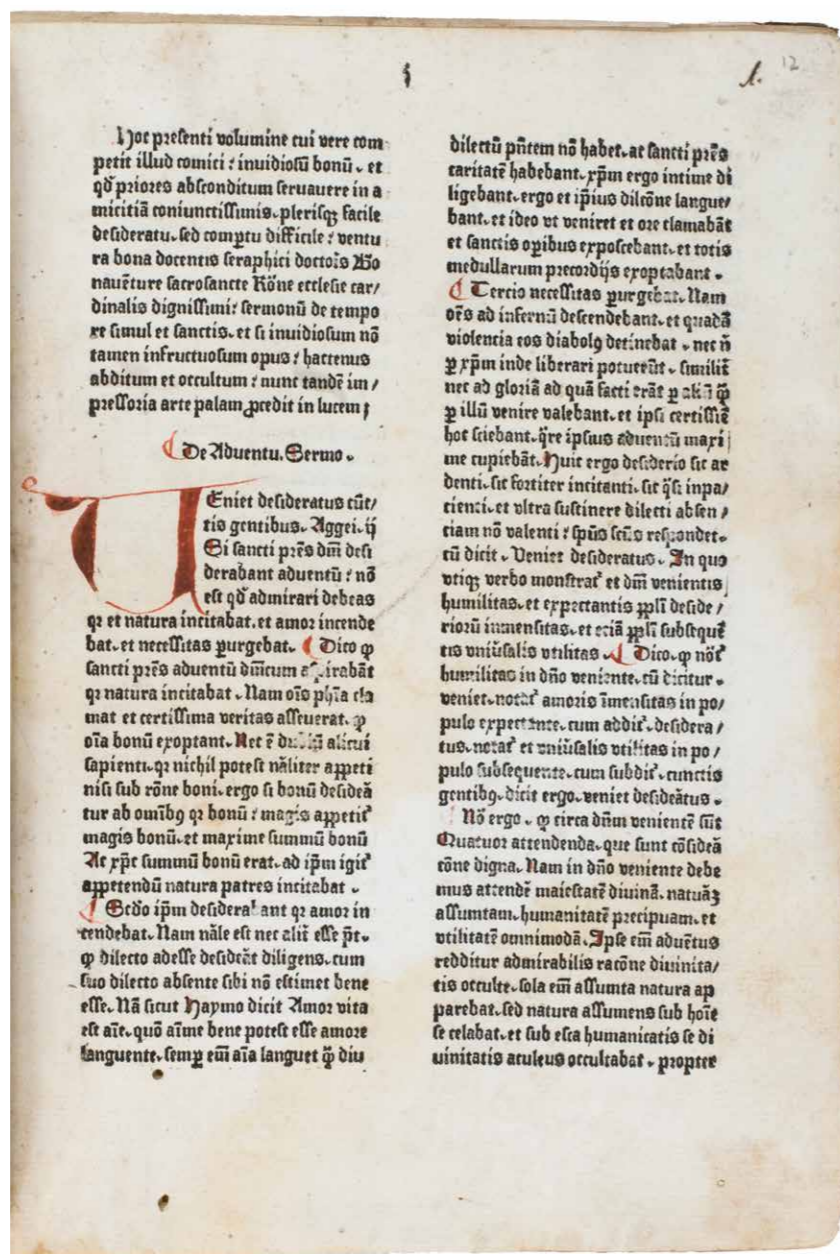 1. 12
Hoc presenti volumine cui vere com
petit illud comici : invidiosũ bonũ . et
qđ priores absconditum seruauere in a
micitiã coniunctissimis . plerisqꝫ facile
desideratu . sed compertu difficile : ventu
ra bona docentis seraphici doctoꝛis Bo
nauẽture sacrosancte Rõne ecclesie car/
dinalis dignissimi : sermonũ de tempo
re simul et sanctis . et si invidiosum nõ
tamen infructuosum opus : hactenus
abditum et occultum : nunc tandẽ im /
pressoria arte palam ꝓcedit in lucem ;
De Aduentu . Sermo .
VEniet desideratus cũc/
tis gentibus . Aggei . ij
Si sancti p̃res dñi desi
derabant aduentũ : nõ
est qđ admirari debeas
qꝛ et natura incitabat . et amor incende
bat . et necessitas ꝑurgebat . Dico ꝙ
sancti p̃res aduentũ dñicum aspirabãt
qꝛ natura incitabat . Nam oĩs phĩa cla
mat et certissima veritas asseuerat . ꝙ
oĩa bonũ exoptant . Nec ẽ dubiũ alicui
sapienti . qꝛ nichil potest nãliter appeti
nisi sub rõne boni . ergo si bonũ desideã
tur ab omĩbꝯ qꝛ bonũ : magis appetit᷑
magis bonũ . et maxime summũ bonũ
At xp̃c summũ bonũ erat . ad ip̃m igit᷑
appetendũ natura patres incitabat .
Scđo ip̃m desiderabant qꝛ amor in
cendebat . Nam nãle est nec alit᷑ esse p̃t .
ꝙ dilecto adesse desideãt diligens . cum
suo dilecto absente sibi nõ estimet bene
esse . Nã sicut Haymo dicit Amor vita
est aĩe . quõ aĩme bene potest esse amore
languente . semꝑ eñi aĩa languet qͫ̃ diu
dilectũ p̃ntem nõ habet . at sancti p̃res
caritatẽ habebant . xp̃m ergo intime di
ligebant . ergo et ip̃ius dilcõne langue/
bant . et ideo vt veniret et ore clamabãt
et sanctis oꝑibus exposcebant . et totis
medullarum precordijs exoptabant .
Tercio necessitas ꝑurgebat . Nam
oẽs ad infernũ descendebant . et quadã
violencia eos diabolꝯ detinebat . nec ñ
ꝑ xp̃m inde liberari potuerũt . similit᷑
nec ad gloriã ad quã facti erãt ꝑ aliũ qͫ̃
ꝑ illũ venire valebant . et ipsi certissĩe
hoc sciebant . q̃re ipsius aduentũ maxi
me cupiebãt . Huic ergo desiderio sic ar
denti . sic fortiter incitanti . sic q̃si inpa/
cienti . et vltra sustinere dilecti absen /
ciam nõ valenti : sp̃us scũs respondet .
cũ dicit . Veniet desideratus . In quo
vtiqꝫ verbo monstrat᷑ et dñi venientis
humilitas . et expectantis pp̃li deside /
riorũ inmensitas . et eciã pp̃li subsequẽ
tis vniũsalis vtilitas . Dico . ꝙ nõt᷑
humilitas in dño veniente . cũ dicitur .
veniet . notat᷑ amoris ĩmensitas in po/
pulo expectante . cum addit᷑ . desidera /
tus . notat᷑ et vniũsalis vtilitas in po /
pulo subsequente . cum subdit᷑ . cunctis
gentibꝯ . dicit ergo . veniet desideãtus .
Nõ ergo . ꝙ circa dñm venientẽ sũt
Quatuor attendenda . que sunt cõsideã
cõne digna . Nam in dño veniente debe
mus attendẽ maiestatẽ diuinã . natuãꝫ
assumtam . humanitatẽ precipuam . et
vtilitatẽ omnimodã . Ipse eñi aduẽtus
redditur admirabilis racõne diuinita/
tis occulte . sola eñi assumta natura ap
parebat . sed natura assumens sub hoĩe
se celabat . et sub esca humanitatis se di
uinitatis aculeus occultabat . propter